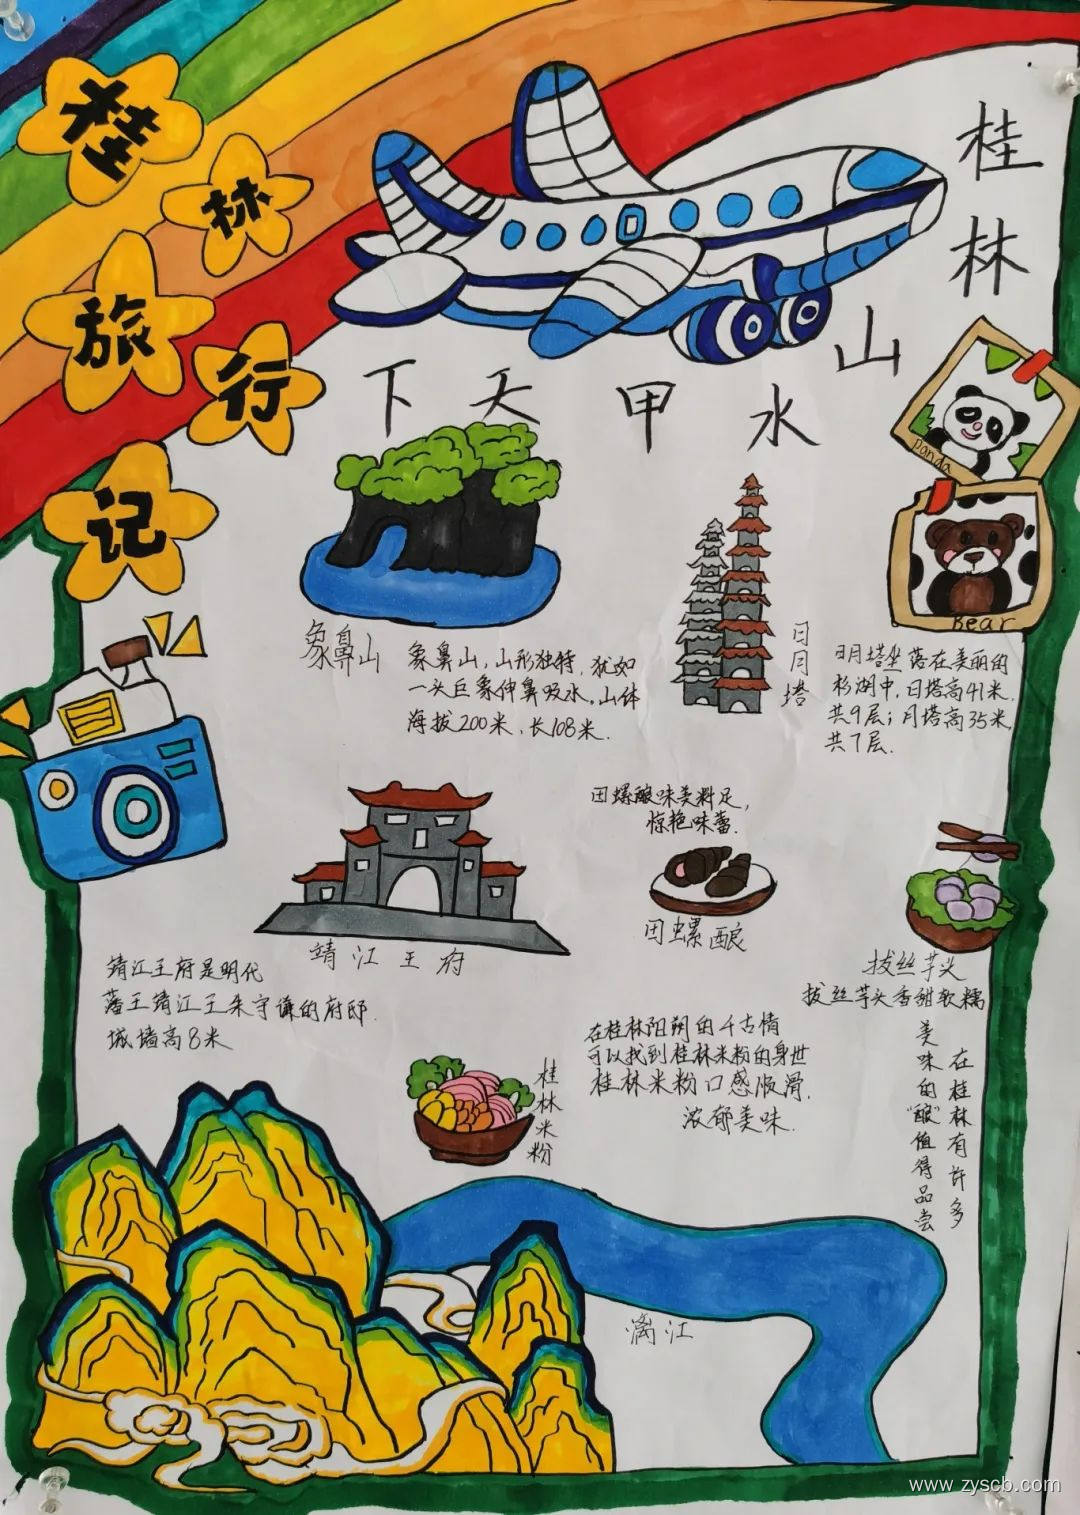 桂林旅行记
桂林山水甲天下
panda
Bear
象鼻山
象鼻山,山形独特,犹如
一头巨象伸鼻吸水。山体
海拔200米,长108米.
日月塔
日月塔坐落在美丽的
杉湖中,日塔高41米.
共9层;月塔高35米,
共7层.
田螺酿味美料足,
惊艳味蕾.
田螺酿
靖江王府
靖江王府是明代
藩王靖江王朱守谦的府邸.
城墙高8米
拔丝芋头
拔丝芋头香甜软糯
在桂林阳朔的千古情
可以找到桂林米粉的身世
桂林米粉口感顺滑.
浓郁美味.
桂林米粉
在桂林有许多
美味的“酿”值得品尝
漓江
www.zyscb.com